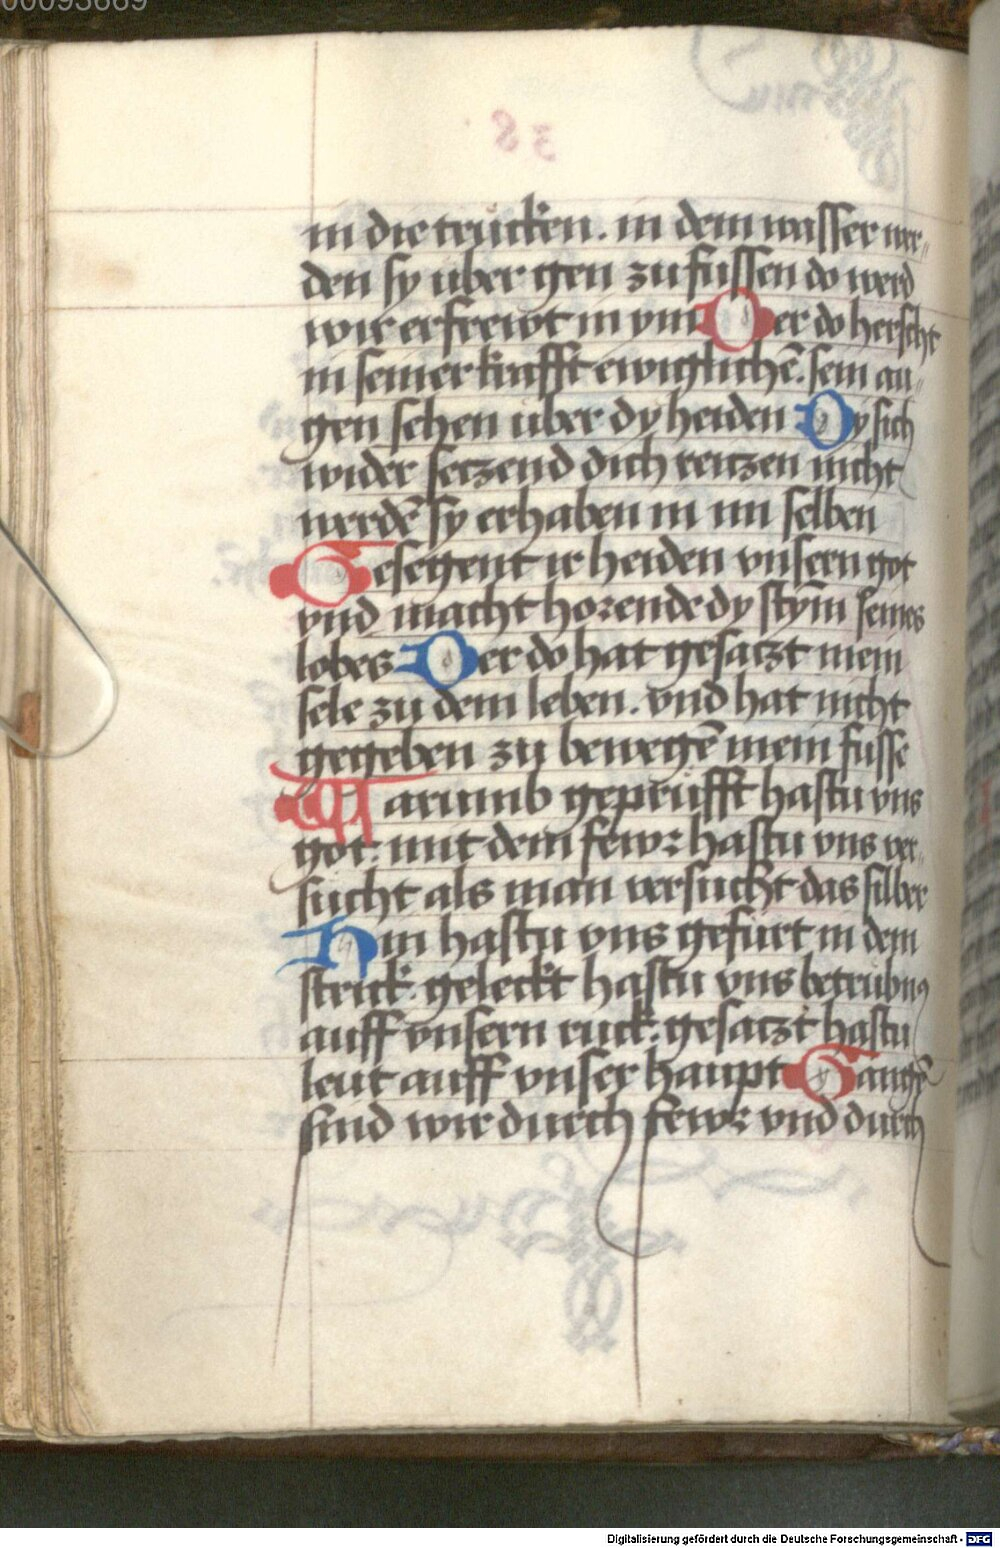 in die trücken. in dem wasser wer„
den sy uber gen zu füssen do werd
wir erfrewt in ym Der do herscht
in seiner krafft ewiglichē. sein au„
gen sehen über dy heiden Dy sich
wider seczend dich reitzen nicht
werdē sy erhaben in im selben
Gesegent ir heiden vnsern got
vnd macht horende dy stym̄ seines
lobes Der do hat gesaczt mein
sele zu dem leben. vnd hat nicht
gegeben zu bewegē mein füsse
Warumb geprüfft hastu vns
got. mit dem fewr hastu vns ver„
sücht als man versücht das silber
Hin hastu vns gefürt in dem
strick. geleckt hastu vns betrübnꝰ
auff vnsern ruck. gesaczt hastu
leut auff vnser haupt Gangē
sind wir durch fewr vnd durch
Digitalisierung gefördert durch die Deutsche Forschungsgemeinschaft - DFG